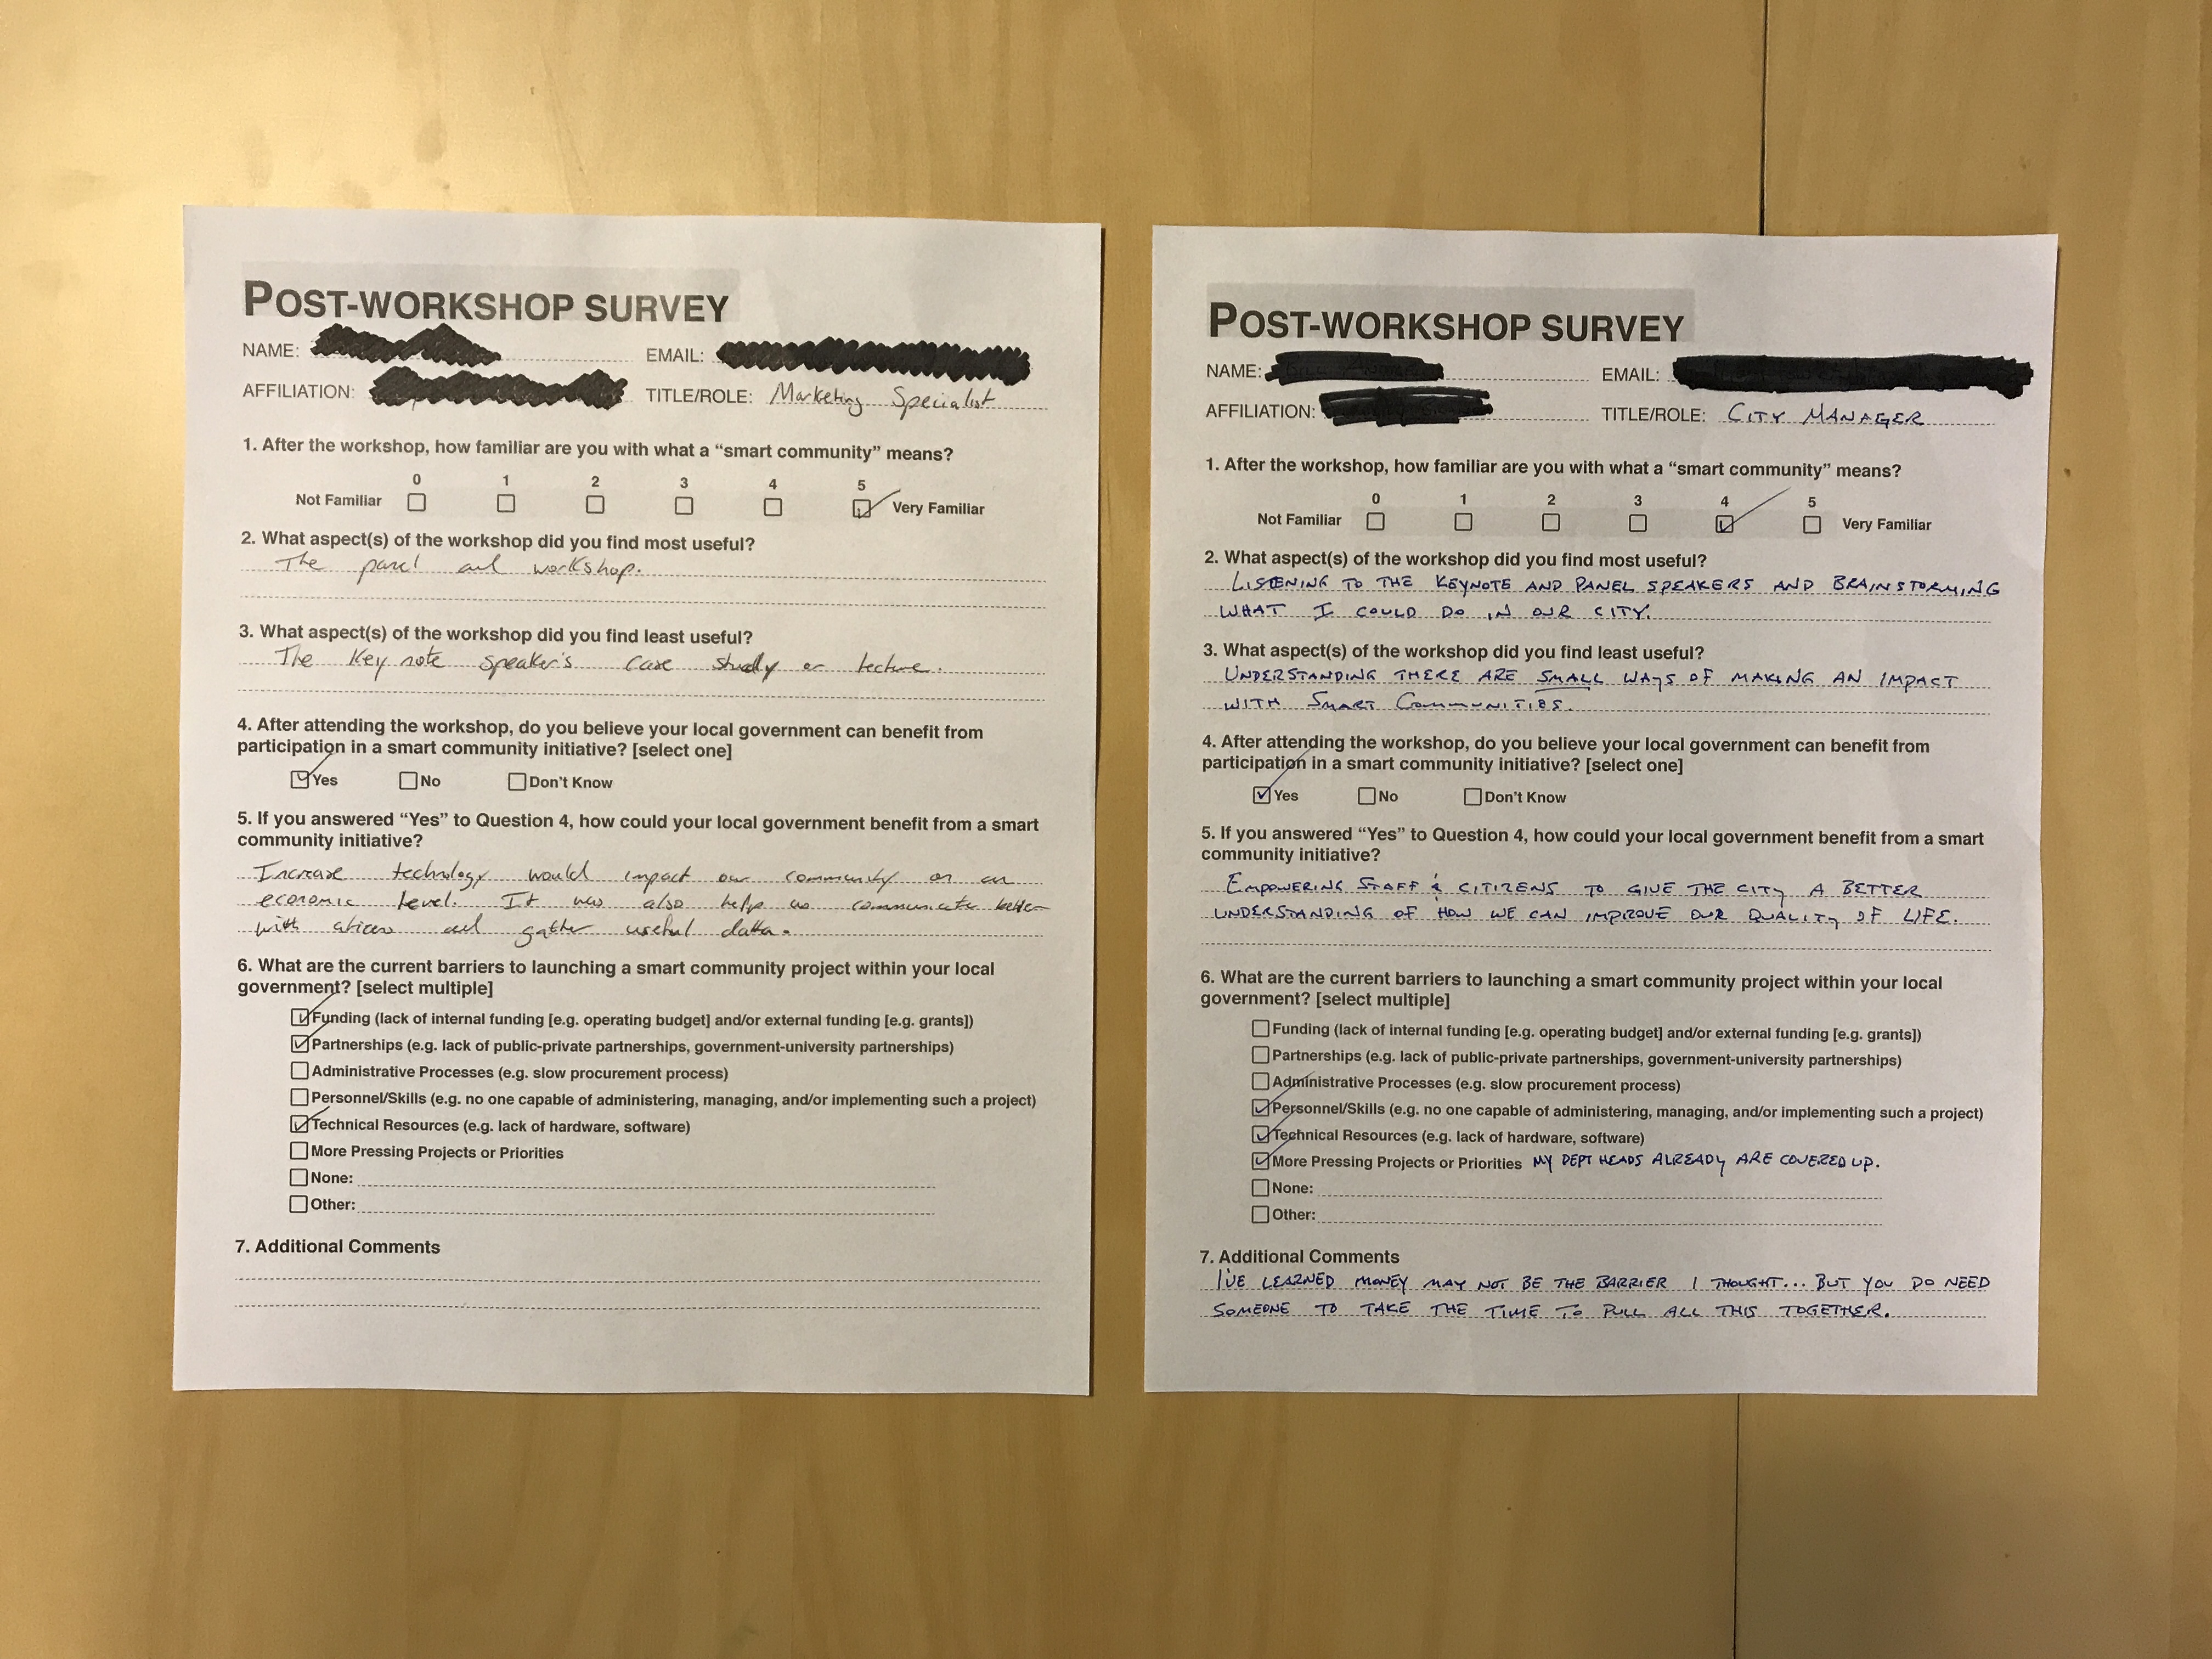 POST-WORKSHOP SURVEY
NAME: EMAIL:
AFFILIATION: TITLE/ROLE: Marketing Specialist
1. After the workshop, how familiar are you with what a “smart community” means?
0 1 2 3 4 5
Not Familiar Very Familiar
2. What aspect(s) of the workshop did you find most useful?
The panel and workshop.
3. What aspect(s) of the workshop did you find least useful?
The Key note speaker's case study or lecture.
4. After attending the workshop, do you believe your local government can benefit from
participation in a smart community initiative? [select one]
Yes No Don't Know
5. If you answered “Yes” to Question 4, how could your local government benefit from a smart
community initiative?
Increase technology would impact our community on an
economic level. It also help us communicate better
with citizens and gather useful data.
6. What are the current barriers to launching a smart community project within your local
government? [select multiple]
Funding (lack of internal funding [e.g. operating budget] and/or external funding [e.g. grants])
Partnerships (e.g. lack of public-private partnerships, government-university partnerships)
Administrative Processes (e.g. slow procurement process)
Personnel/Skills (e.g. no one capable of administering, managing, and/or implementing such a project)
Technical Resources (e.g. lack of hardware, software)
More Pressing Projects or Priorities
None:
Other:
7. Additional Comments
POST-WORKSHOP SURVEY
NAME: EMAIL:
AFFILIATION: TITLE/ROLE: CITY MANAGER
1. After the workshop, how familiar are you with what a “smart community” means?
0 1 2 3 4 5
Not Familiar Very Familiar
2. What aspect(s) of the workshop did you find most useful?
LISTENING TO THE KEYNOTE AND PANEL SPEAKERS AND BRAINSTORMING
WHAT I COULD DO IN OUR CITY.
3. What aspect(s) of the workshop did you find least useful?
UNDERSTANDING THERE ARE SMALL WAYS OF MAKING AN IMPACT
WITH SMART COMMUNITIES.
4. After attending the workshop, do you believe your local government can benefit from
participation in a smart community initiative? [select one]
Yes No Don't Know
5. If you answered “Yes” to Question 4, how could your local government benefit from a smart
community initiative?
EMPOWERING STAFF & CITIZENS TO GIVE THE CITY A BETTER
UNDERSTANDING OF HOW WE CAN IMPROVE OUR QUALITY OF LIFE.
6. What are the current barriers to launching a smart community project within your local
government? [select multiple]
Funding (lack of internal funding [e.g. operating budget] and/or external funding [e.g. grants])
Partnerships (e.g. lack of public-private partnerships, government-university partnerships)
Administrative Processes (e.g. slow procurement process)
Personnel/Skills (e.g. no one capable of administering, managing, and/or implementing such a project)
Technical Resources (e.g. lack of hardware, software)
More Pressing Projects or Priorities MY DEPT HEADS ALREADY ARE COVERED UP.
None:
Other:
7. Additional Comments
I'VE LEARNED MONEY MAY NOT BE THE BARRIER I THOUGHT... BUT YOU DO NEED
SOMEONE TO TAKE THE TIME TO PULL ALL THIS TOGETHER.